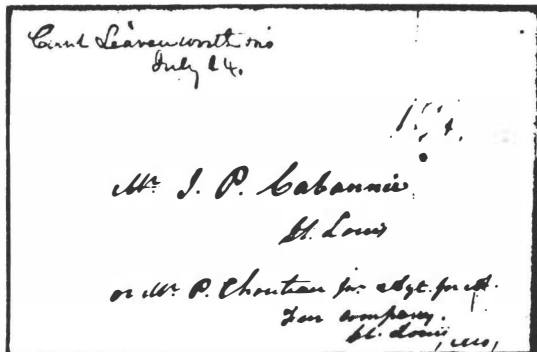 Cant Leavenworth Mo
July 14.
Mr. J. P. Cabannie
St. Louis
or Mr. P. Chouteau jr. Agt. for A.
Fur Company.
St. Louis
Mo,